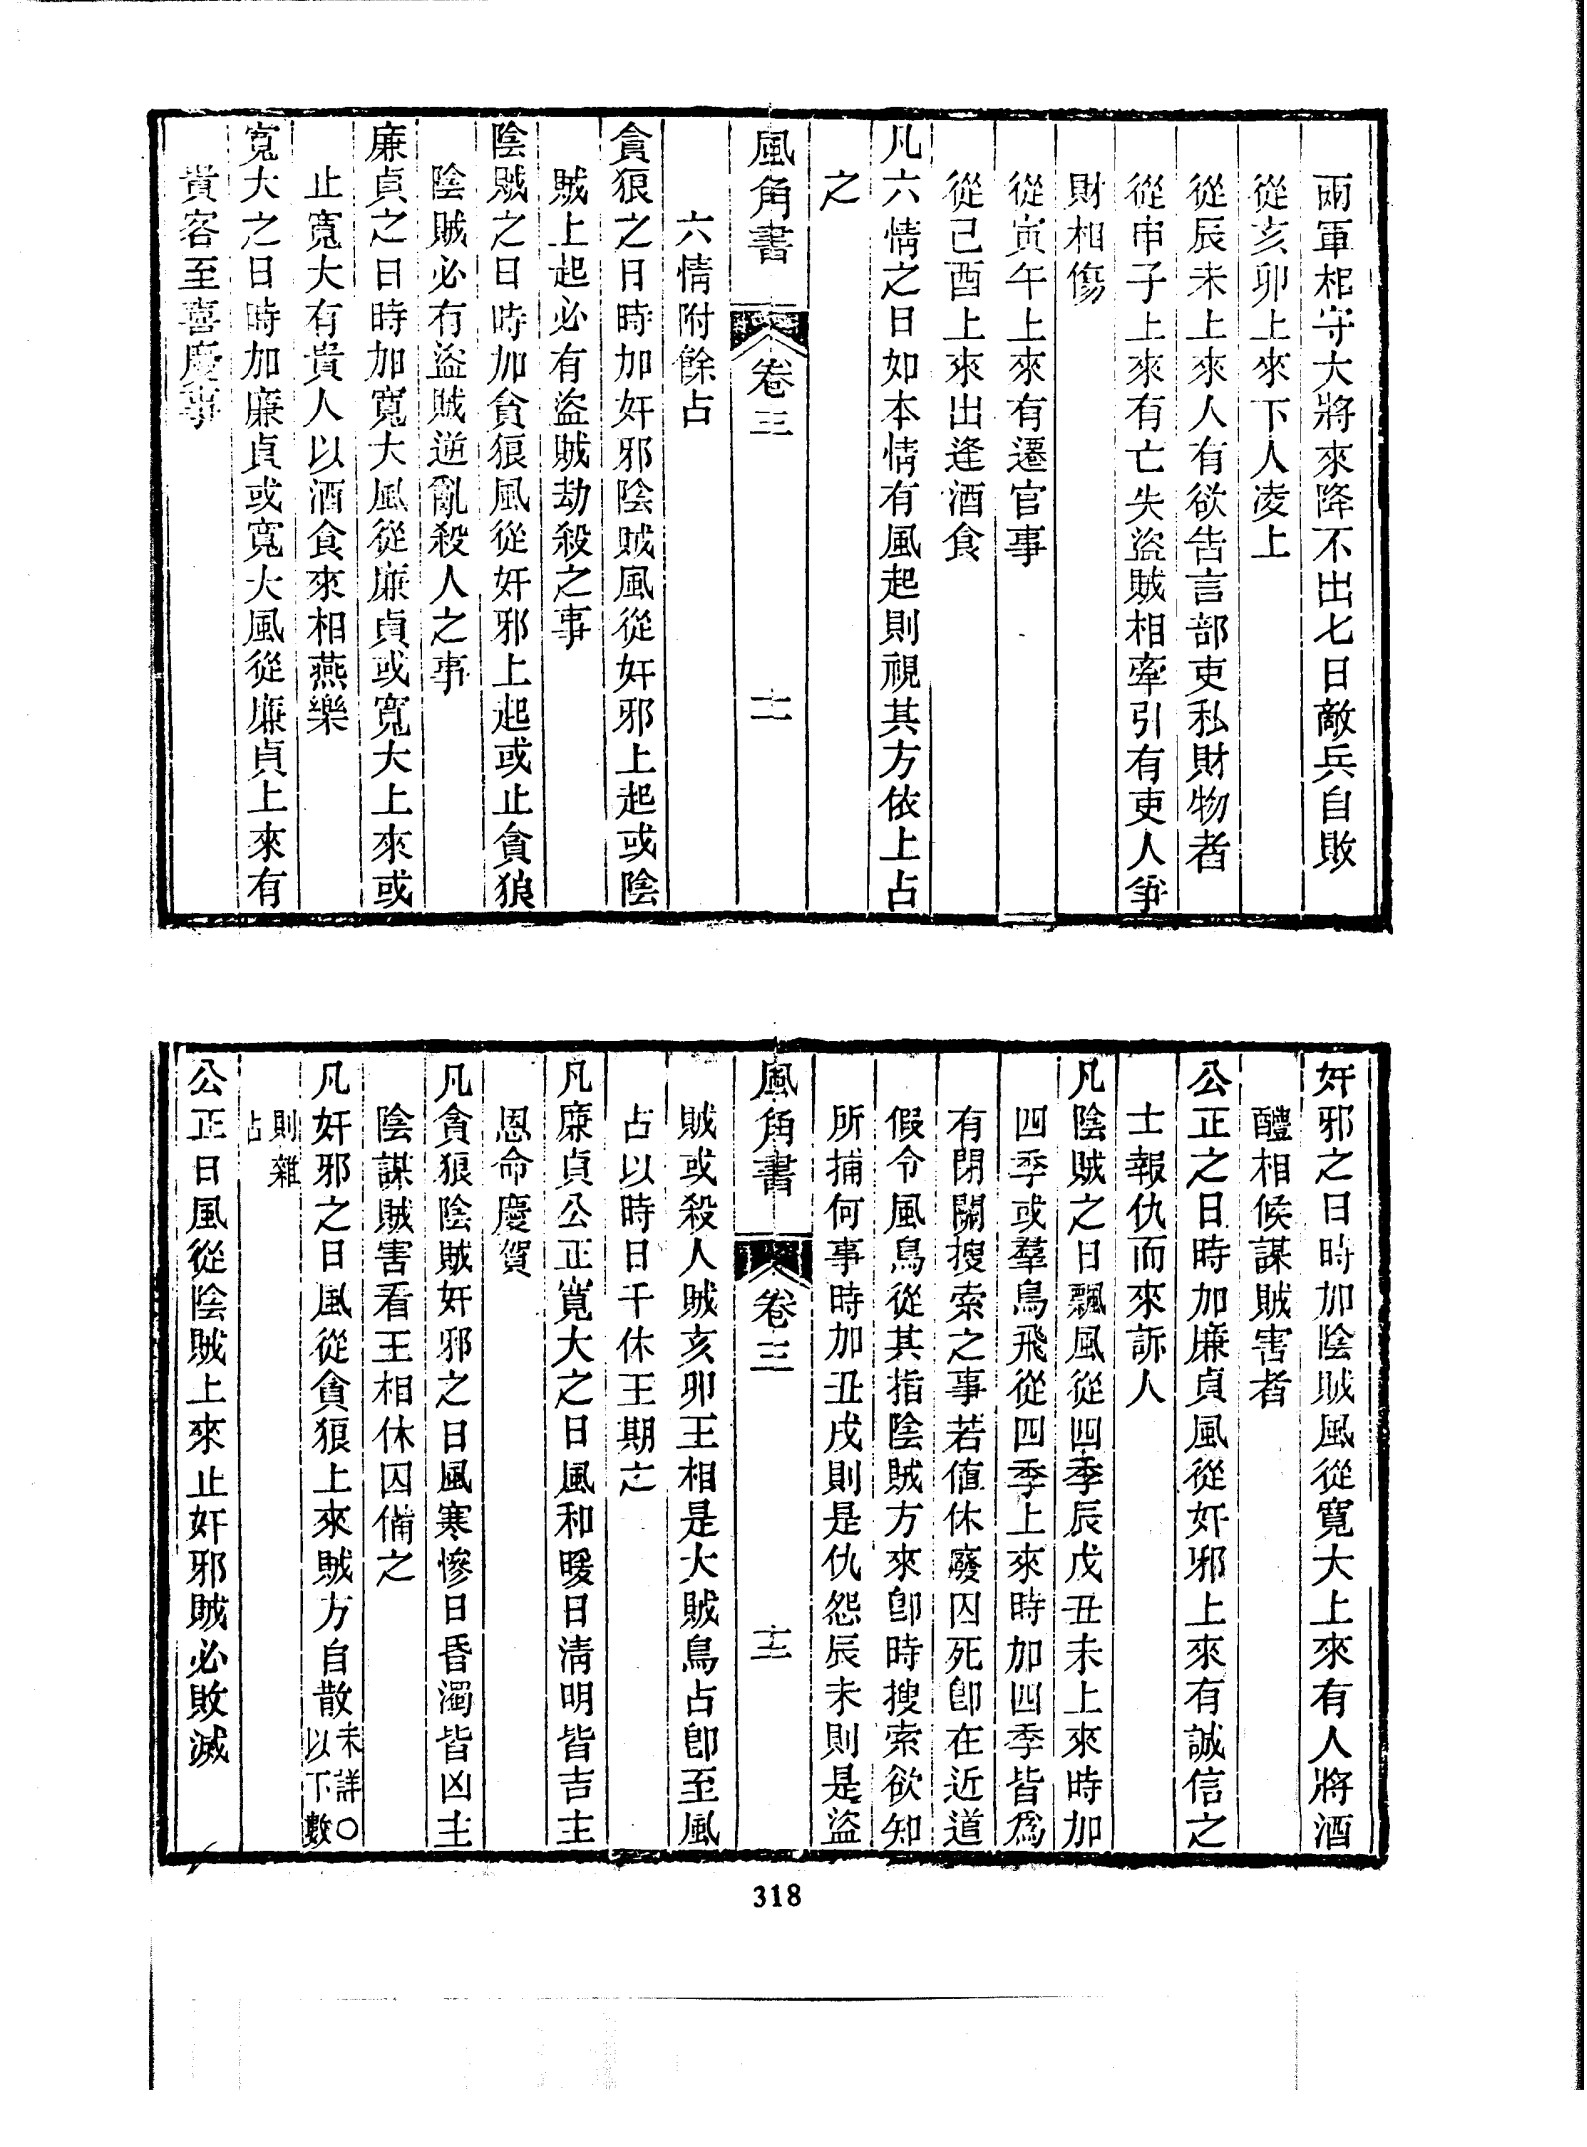 兩軍相守大將來降不出七日敵兵自敗
從亥卯上來下人凌上
從辰未上來人有欲告言部吏私財物者
從申子上來有亡失盜賊相牽引有吏人爭
財相傷
從寅午上來有遷官事
從己酉上來出逢酒食
凡六情之日如本情有風起則視其方依上占
之
風角書 卷三 十二
六情附餘占
貪狼之日時加奸邪陰賊風從奸邪上起或陰
賊上起必有盜賊劫殺之事
陰賊之日時加貪狼風從奸邪上起或止貪狼
陰賊必有盜賊逆亂殺人之事
廉貞之日時加寬大風從廉貞或寬大上來或
止寬大有貴人以酒食來相燕樂
寬大之日時加廉貞或寬大風從廉貞上來有
貴客至喜慶事
奸邪之日時加陰賊風從寬大上來有人將酒
醴相候謀賊害者
公正之日時加廉貞風從奸邪上來有誠信之
士報仇而來訴人
凡陰賊之日飄風從四季辰戊丑未上來時加
四季或羣鳥飛從四季上來時加四季皆爲
有閉關搜索之事若值休廢囚死卽在近道
假令風鳥從其指陰賊方來卽時搜索欲知
所捕何事時加丑戌則是仇怨辰未則是盜
風角書 卷三 十三
賊或殺人賊亥卯王相是大賊鳥占卽至風
占以時日干休王期之
凡廉貞公正寬大之日風和暖日淸明皆吉主
恩命慶賀
凡貪狼陰賊奸邪之日風寒慘日昏濁皆凶主
陰謀賊害看王相休囚備之
凡奸邪之日風從貪狼上來賊方自散未詳○以下數
則雜占
公正日風從陰賊上來止奸邪賊必敗滅
318